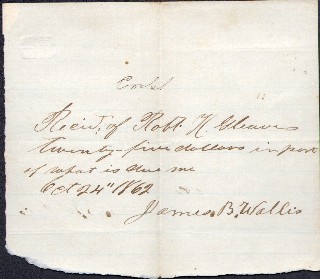 Recivd, of Robt. H. Gleaves
twenty-five dollars in part
of what is due me
Oct 24" 1862
James B. Wallis